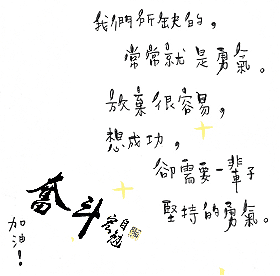 我們所缺的，
常常就是勇氣。
放棄很容易，
想成功，
卻需要一輩子
堅持的勇氣。
奮斗
加油！